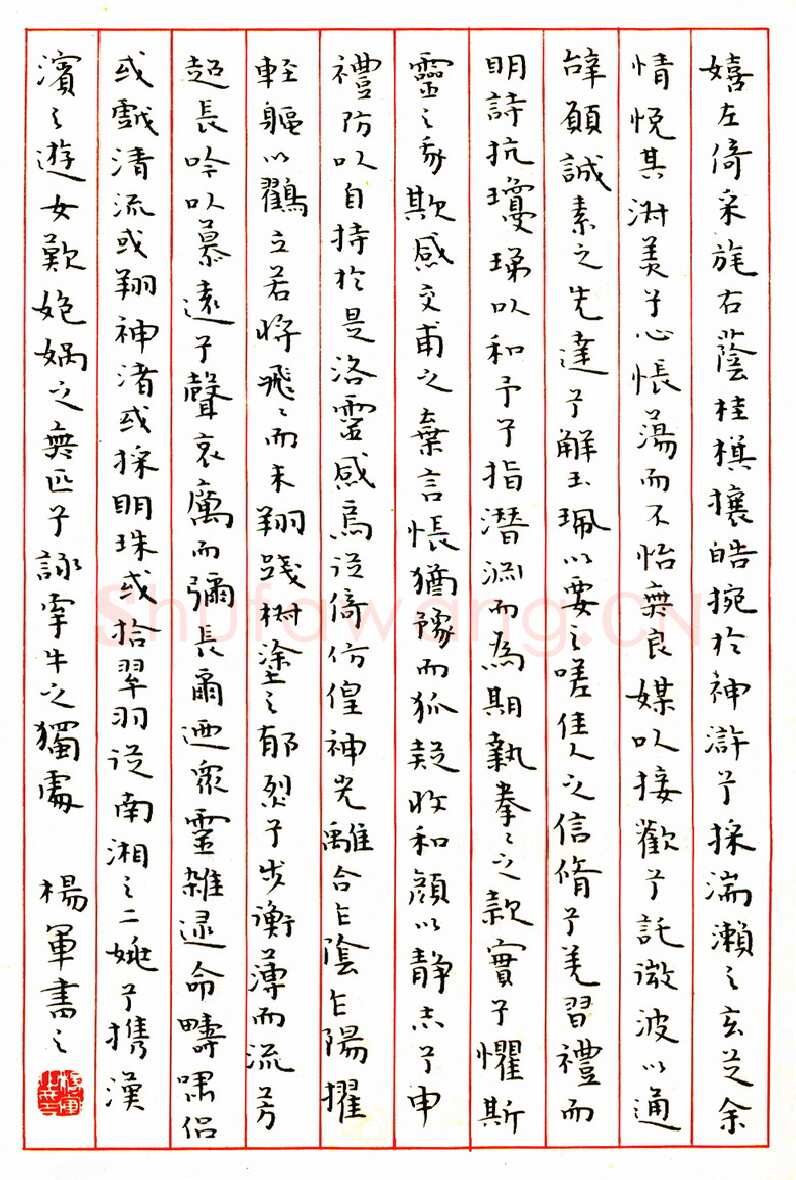 嬉左倚采旄右蔭桂棋攘皓捥於神滸兮採湍瀨之玄芝余
情悅其淑美兮心悵蕩而不怡無良媒以接歡兮託微波以通
辝願誠素之先達兮解玉珮以要之嗟佳人之信脩兮羌習禮而
明詩抗瓊珶以和予兮指潛淵而為期執拳〻之款實兮懼斯
靈之我欺感交甫之棄言悵猶豫而狐疑收和顏以静志兮申
禮防以自持於是洛靈感焉徙倚仿偟神光離合乍陰乍陽擢
軽軀以鶴立若將飛〻而未翔踐椒塗之郁烈兮步衡薄而流芳
超長吟以慕遠兮聲哀厲而彌長爾迺眾靈雜遝命疇嘯侶
或戲清流或翔神渚或採明珠或拾翠羽從南湘之二姚兮携漢
濱之遊女歎匏媧之無匹兮詠牽牛之獨處 楊軍書之
Shufawang.CN